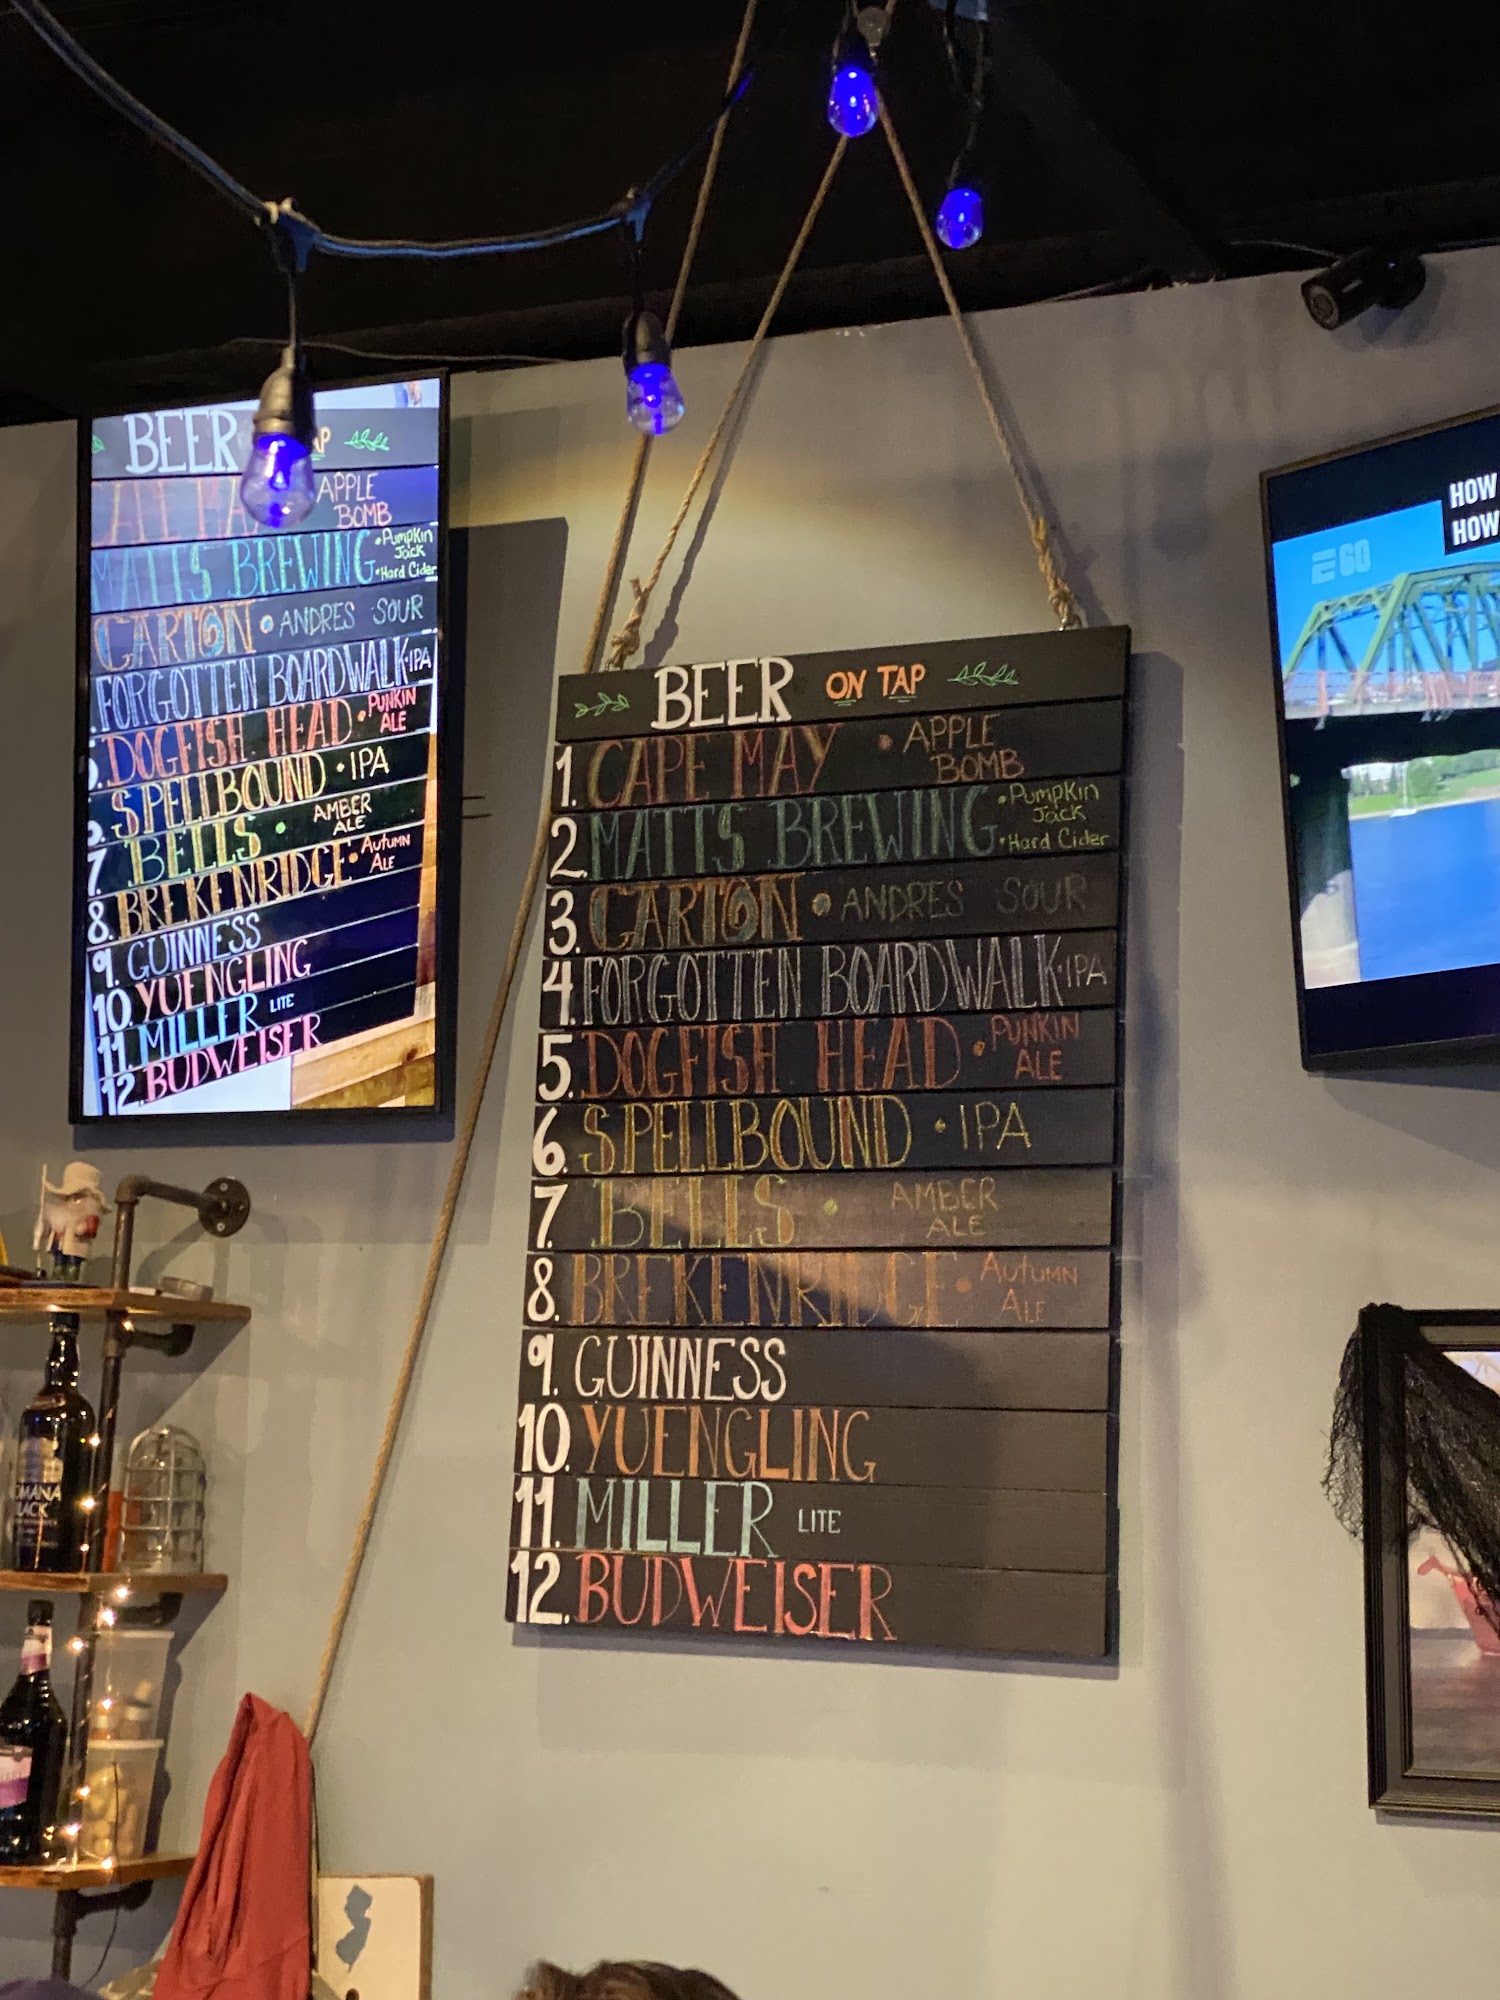 BEER
APPLE
BOMB
MATTS BREWING • Pumpkin
Jack
• Hard Cider
CARTON • ANDRES SOUR
FORGOTTEN BOARDWALK • IPA
DOGFISH HEAD • PUNKIN
ALE
SPELLBOUND • IPA
7 BELLS • AMBER
ALE
8. BREKENRIDGE • Autumn
Ale
9. GUINNESS
10. YUENGLING
11. MILLER LITE
12. BUDWEISER
BEER ON TAP
1. CAPE MAY • APPLE
BOMB
2. MATTS BREWING • Pumpkin
Jack
• Hard Cider
3. CARTON • ANDRES SOUR
4. FORGOTTEN BOARDWALK • IPA
5. DOGFISH HEAD • PUNKIN
ALE
6. SPELLBOUND • IPA
7. BELLS • AMBER
ALE
8. BREKENRIDGE • Autumn
Ale
9. GUINNESS
10. YUENGLING
11. MILLER LITE
12. BUDWEISER
HOW
HOW
E60